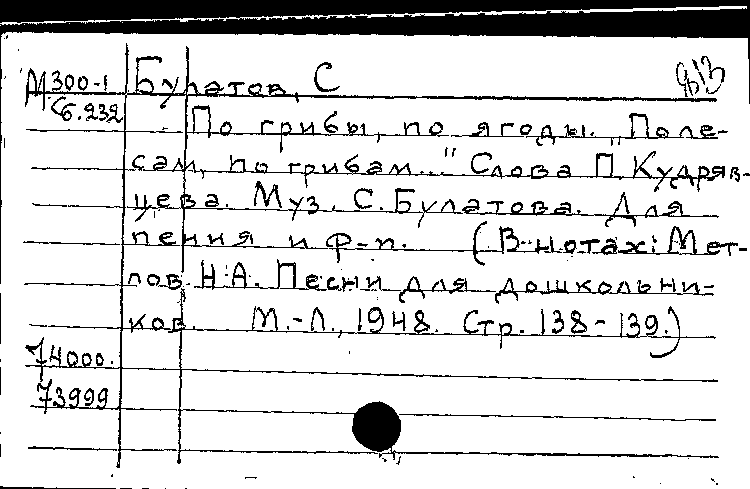 М 300-1 Булатов, С
Сб. 232
По грибы, по ягоды. „Поле-
сам, по грибам..." Слова П. Кудряв-
цева. Муз. С. Булатова. Для
пения и ф-п. (В нотах: Мет-
лов Н.А. Песни для дошкольни-
ков. М.-Л., 1948. Стр. 138-139.)
74000.
73999